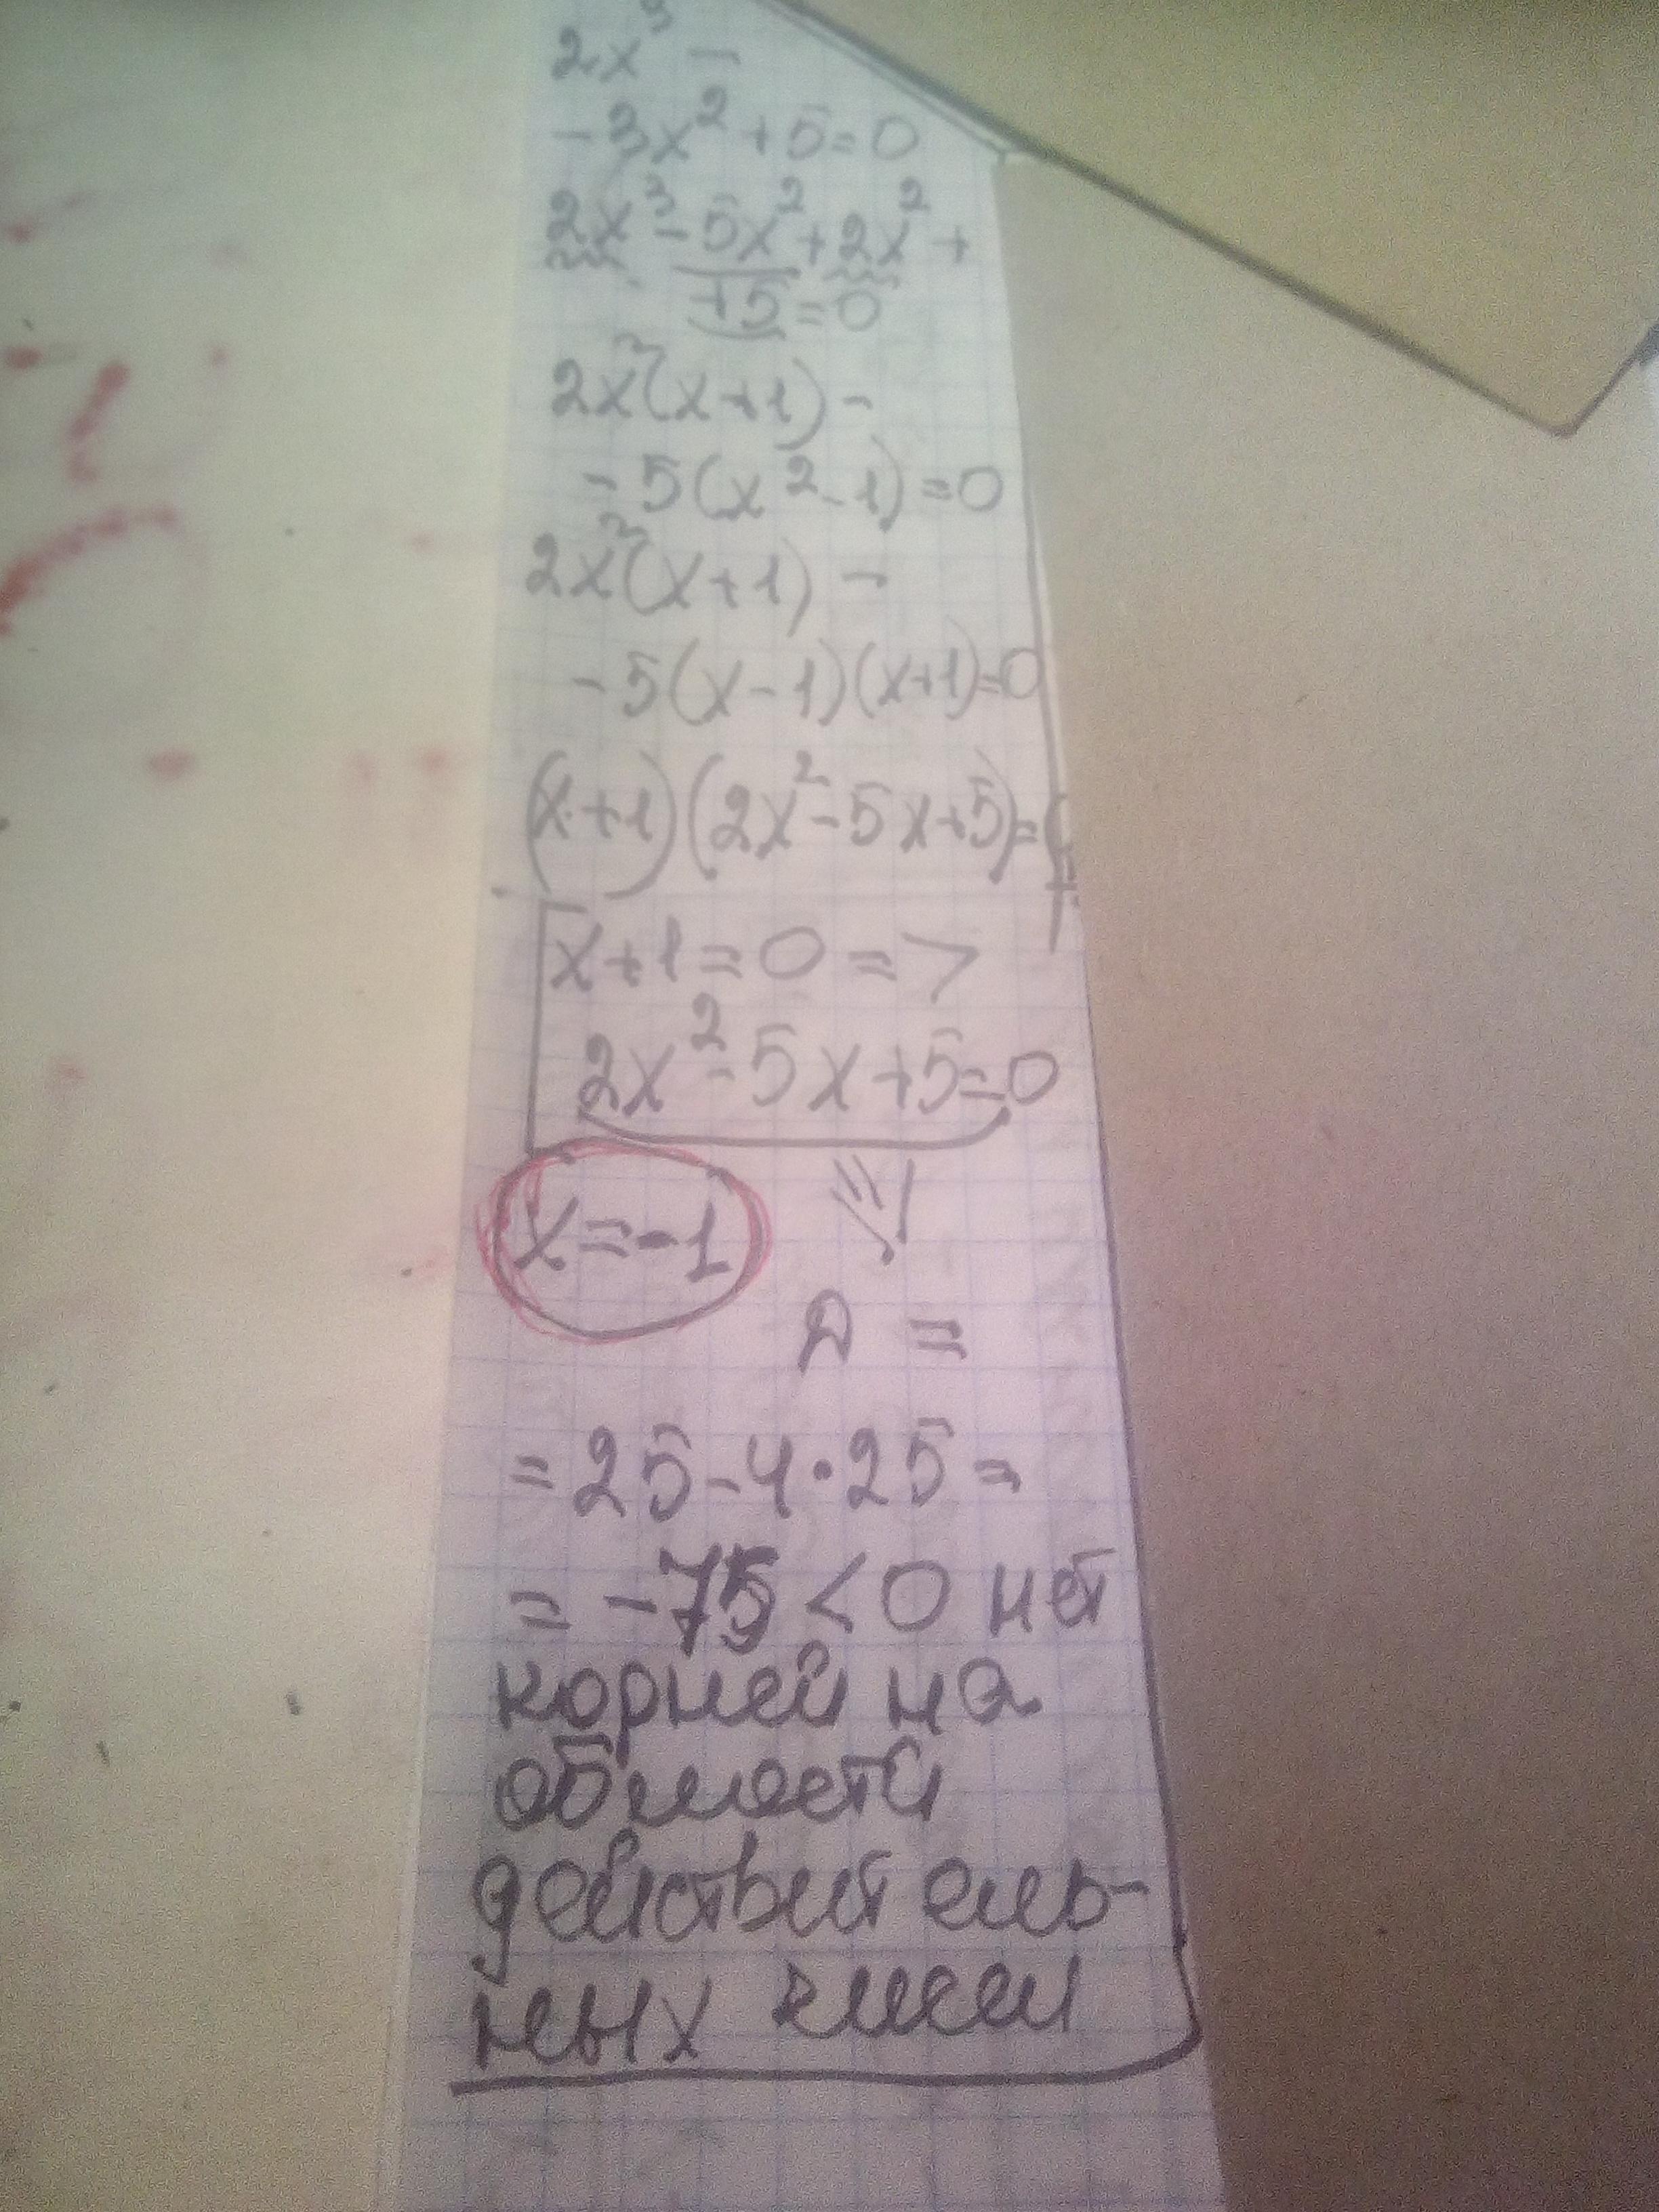 2x³ -
- 3x² + 5 = 0
2x³ - 5x² + 2x² +
+5 = 0
2x²(x+1) -
- 5(x² - 1) = 0
2x²(x+1) -
- 5(x-1)(x+1)=0
(x+1)(2x² - 5x+5)=
x+1=0 =>
2x² - 5x+5=0
x=-1
D =
= 25-4·25 =
= -75 < 0 нет
корней на
области
действитель-
ных чисел